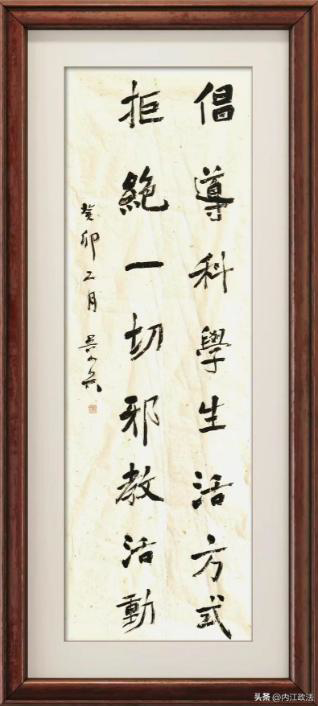 倡導科學生活方式
拒絶一切邪教活動
癸卯二月
头条@内江政法